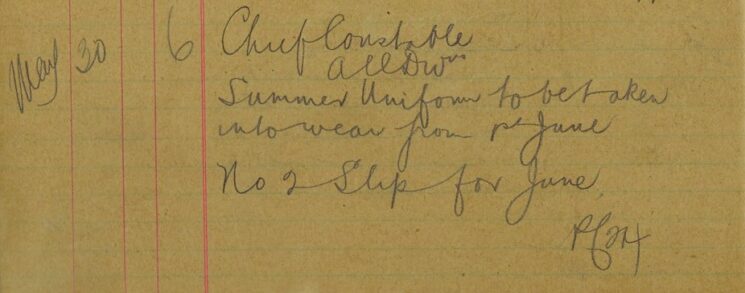 May 30 6 Chief Constable
All Dvns
Summer Uniform to be taken
into wear from 1st June
No 2 Slip for June.